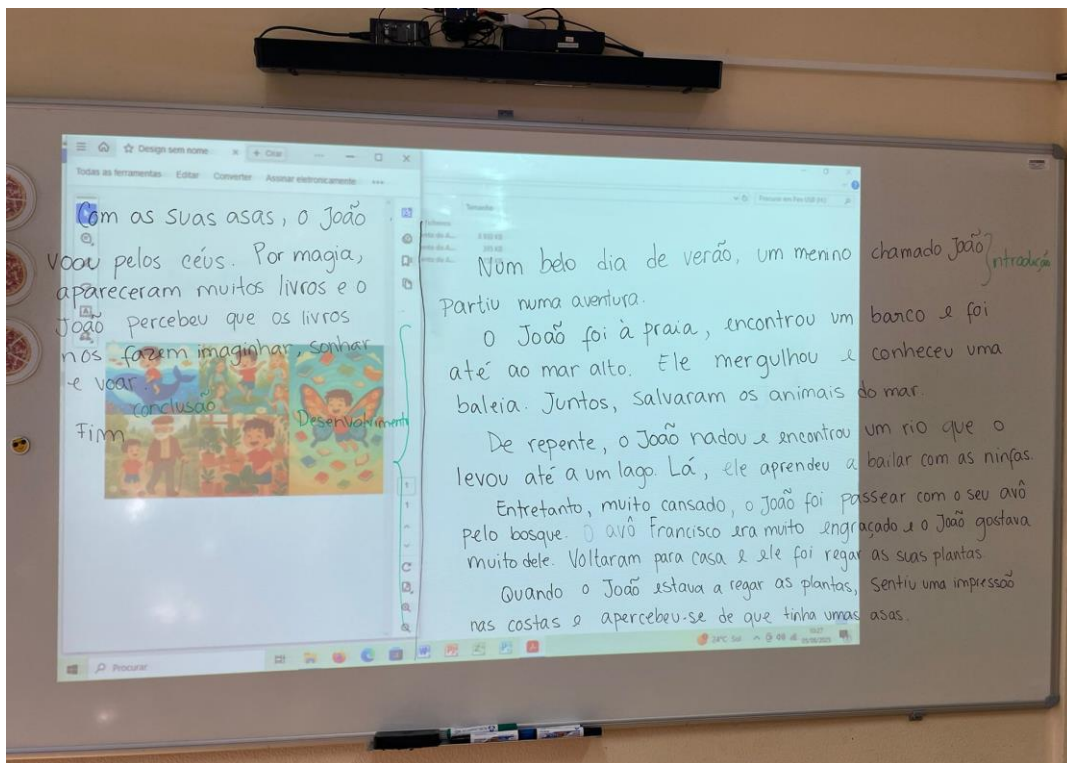 Design sem nome
+ Criar
Todas as ferramentas Editar Converter Assinar eletronicamente
Com as suas asas, o João
voou pelos céus. Por magia,
apareceram muitos livros e o
João percebeu que os livros
nos fazem imaginhar, sonhar
e voar.
conclusão
Fim
Desenvolvimento
Tamanho
Procurar em Pen USB (H:)
Num belo dia de verão, um menino chamado João
introdução
partiu numa aventura.
O João foi à praia, encontrou um barco e foi
até ao mar alto. Ele mergulhou e conheceu uma
baleia. Juntos, salvaram os animais do mar.
De repente, o João nadou e encontrou um rio que o
levou até a um lago. Lá, ele aprendeu a bailar com as ninfas.
Entretanto, muito cansado, o João foi passear com o seu avô
pelo bosque. O avô Francisco era muito engraçado e o João gostava
muito dele. Voltaram para casa e ele foi regar as suas plantas
Quando o João estava a regar as plantas, sentiu uma impressão
nas costas e apercebeu-se de que tinha umas asas.
1
1
Procurar
24°C Sol
10:27